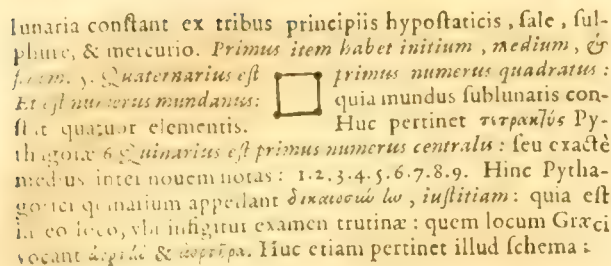 lunaria conſtant ex tribus principiis hypoſtaticis, ſale, ſul-
phure, & mercurio. Primus item habet initium, medium, &
finem. 5. Quaternarius eſt primus numerus quadratus:
Et eſt numerus mundanus: quia mundus ſublunatis con-
ſtat quatuor elementis. Huc pertinet τιτρακτύς Py-
thagoræ 6 Quinarius eſt primus numerus centralis: ſeu exactè
medius inter nouem notas: 1.2.3.4.5.6.7.8.9. Hinc Pytha-
gorici quinarium appellant δικαιοσύνων, iuſtitiam: quia eſt
in eo loco, vbi infigitur examen trutinæ: quem locum Græci
vocant & Huc etiam pertinet illud ſchema: